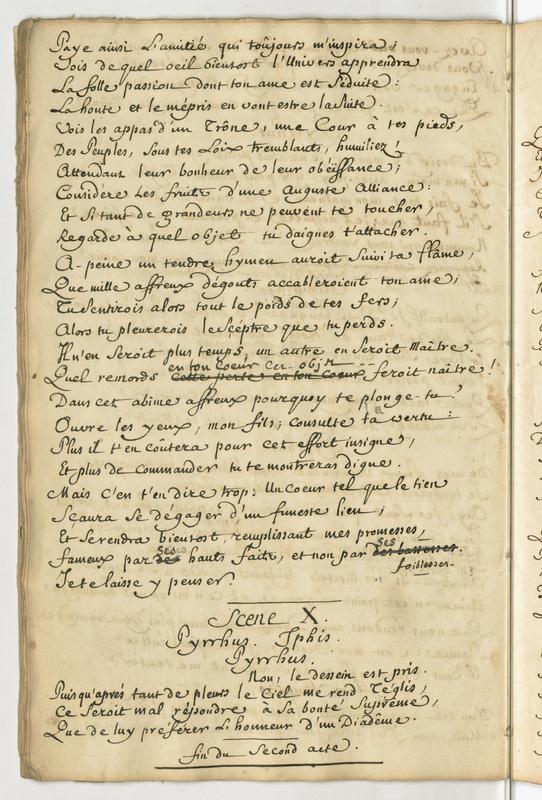 Paye ainsi L'amitié qui toûjours m'inspira;
Vois de quel oeil bientost l'Univers apprendra
La folle passion dont ton ame est séduite:
La honte et le mépris en vont estre la suite.
Vois les appas d'un Trône, une Cour à tes pieds,
Des Peuples, sous tes Loix tremblants, humiliez!
Attendant leur bonheur de leur obéïssance;
Considère les fruits d'une Auguste Alliance:
Et si tant de grandeurs ne peuvent te toucher,
Regarde à quel objet tu daignes t'attacher.
A-peine un tendre hymen auroit suivi ta flâme,
Que mille affreux dégouts accableroient ton ame;
Tu sentirois alors tout le poids de tes fers;
Alors tu pleurerois le scéptre que tu perds.
Il n'en seroit plus temps, un autre en seroit Maître.
en ton coeur cet objet
Quel remords cette perte en ton coeur feroit naître!
Dans cet abime affreux pourquoy te plonge-tu?
Ouvre les yeux, mon fils; consulte ta vertu:
Plus il t'en coûtera pour cet effort insigne,
Et plus de commander tu te montreras digne.
Mais c'en t'en dire trop: Un coeur tel que le tien
Scaura se dégager d'un funeste lien;
Et se rendra bientost, remplissant mes promesses,
ses ses
Fameux par des hauts faits, et non par des bassesses.
foiblesses.
Je te laisse y penser.
Scene X.
Pyrrhus. Iphis.
Pyrrhus.
Non, le dessein est pris.
Puisqu'aprés tant de pleurs le Ciel me rend Téglis,
Ce seroit mal répondre à sa bonté Suprême,
Que de luy préférer L'honneur d'un Diadême.
fin du Second acte.